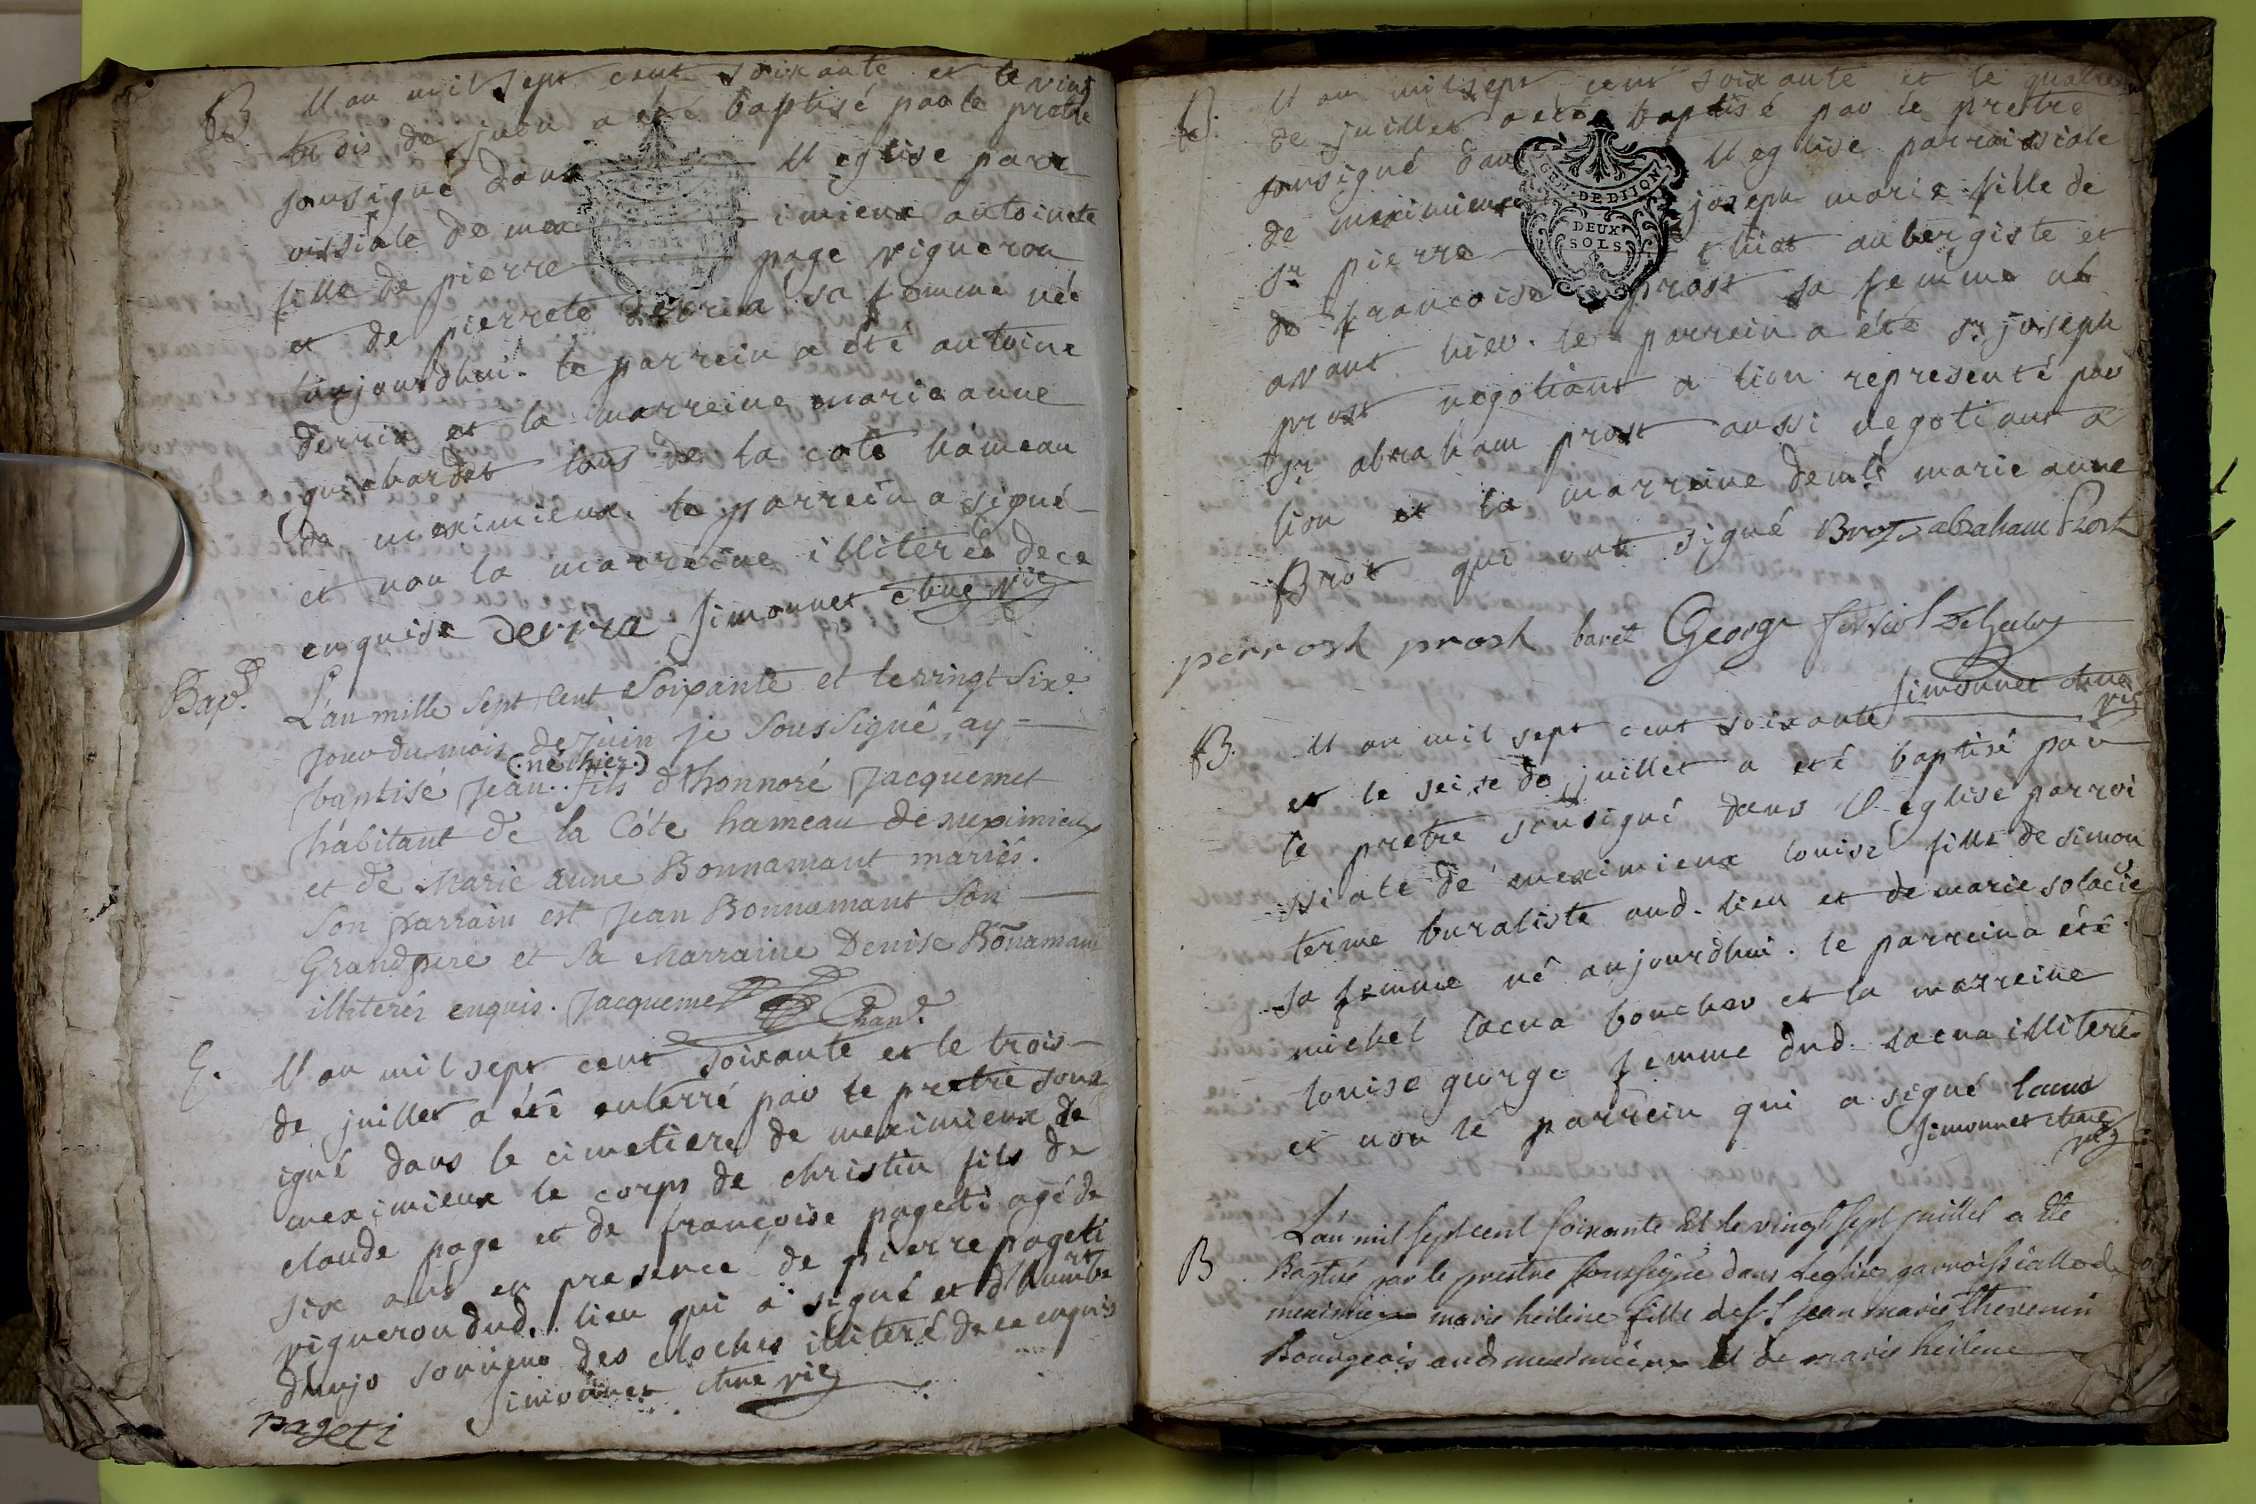 B. l'an mil sept cent soixante et le vint
trois de juin a eté baptisé par le pretre
sousigné dans l'eglise parr
oissiale de mex imieux antoinete
fille de pierre page vigneron
et de pierrete derria sa femme née
aujourdhui. le parrein a été antoine
derria et la marreine marie anne
guichardet tous de la cote hameau
de meximieux. le parrein a signé
et non la marreine illiterée de ce
enquise derria simonnet chne vic
Bap.e L'an mille sept cent soixante et le vingt sixe.
jour du mois de juin je soussigné, ay
(: né hier :)
baptisé jean fils d'honnoré jacquemet
habitant de la Côte hameau de meximieux
et de Marie anne Bonnamant mariés.
son parrain est jean Bonnamant son
Grandpere et sa Marraine Denise Bonamant
illiterés enquis. jacquemet Chan.e
E. l'an mil sept cent soixante et le trois
de juillet a été enterré par le pretre sous
igné dans le cimetiere de meximieux de
meximieux le corps de christin fils de
claude page et de françoise pageti agé de
six ans en presence de pierre pageti
vigneron dud. lieu qui a signé et d'humbert
danjo sonneur des cloches illiteré de ce enquis
simonnet chne vic
pageti
B. l'an mil sept cent soixante et le quatre
de juillet a eté baptisé par le pretre
sousigné dans l'eglise parroissiale
de meximieux joseph marie fille de
GEN. DE DIJON
DEUX
SOLS
sr pierre thiot aubergiste et
de francoise prost sa femme né
avant hier. le parrein a été sr joseph
prost negotiant a lion representé par
sr abraham prost aussi negotiant a
lion et la marreine demlle marie anne
Brot qui ont signé Brot abraham Prost
perrost prost baret George
simonnet chne
vic
B. l'an mil sept cent soixante
et le seize de juillet a eté baptisé par
le pretre sousigné dans l'eglise parroi
ssiale de meximieux louise fille de simon
terme buraliste aud. lieu et de marie solacie
sa femme né aujourdhui. le parrein a été
michel lacua boucher et la marreine
louise george femme dud. lacua illiterée
et non le parrein qui a signé lacua
simonnet chne
vic
L'an mil sept cent soixante Et le vingt sept juillet a été
B Baptisé par le prestre soussigné dans Leglise parroissialle de
meximieux marie heileine fille de sr jean marie thevenin
Bourgeois aud meximieux Et de marie heileine